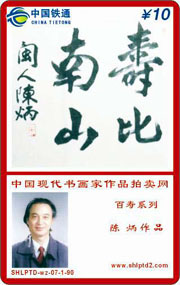 中国铁通
CHINA TIETONG
¥10
壽比
南山
閩人陳炳
中国现代书画家作品拍卖网
百寿系列
陈炳作品
SHLPTD-wz-07-1-90
www.shlptd2.com